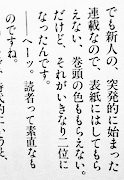 でも新人の、突発的に始まった
連載なので、表紙にはしてもら
えない、巻頭の色ももらえない。
だけど、それがいきなり二位に
なったんです。
――へーッ。読者って素直なも
のですね。